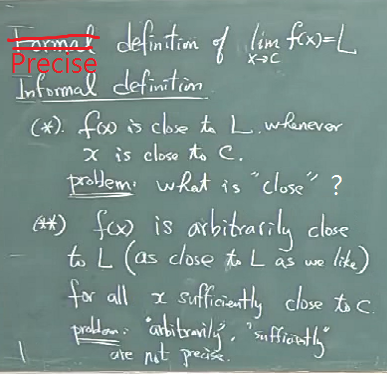 Formal definition of lim f(x)=L
x→c
Precise
Informal definition.
(*). f(x) is close to L. whenever
x is close to C.
problem: what is "close" ?
(**) f(x) is arbitrarily close
to L (as close to L as we like)
for all x sufficiently close to c.
problem: "arbitrarily", "sufficiently"
are not precise.